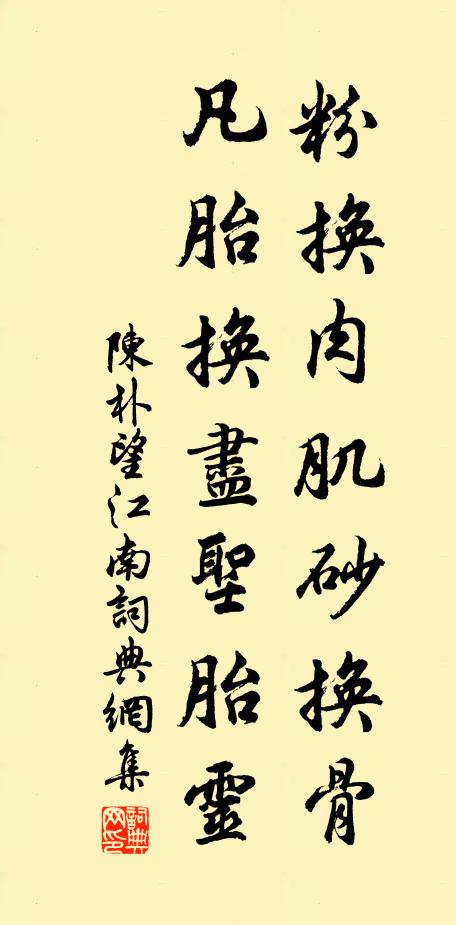 粉換肉肌砂換骨
凡胎換盡聖胎靈
陳朴望江南詞典網集
詞典網印